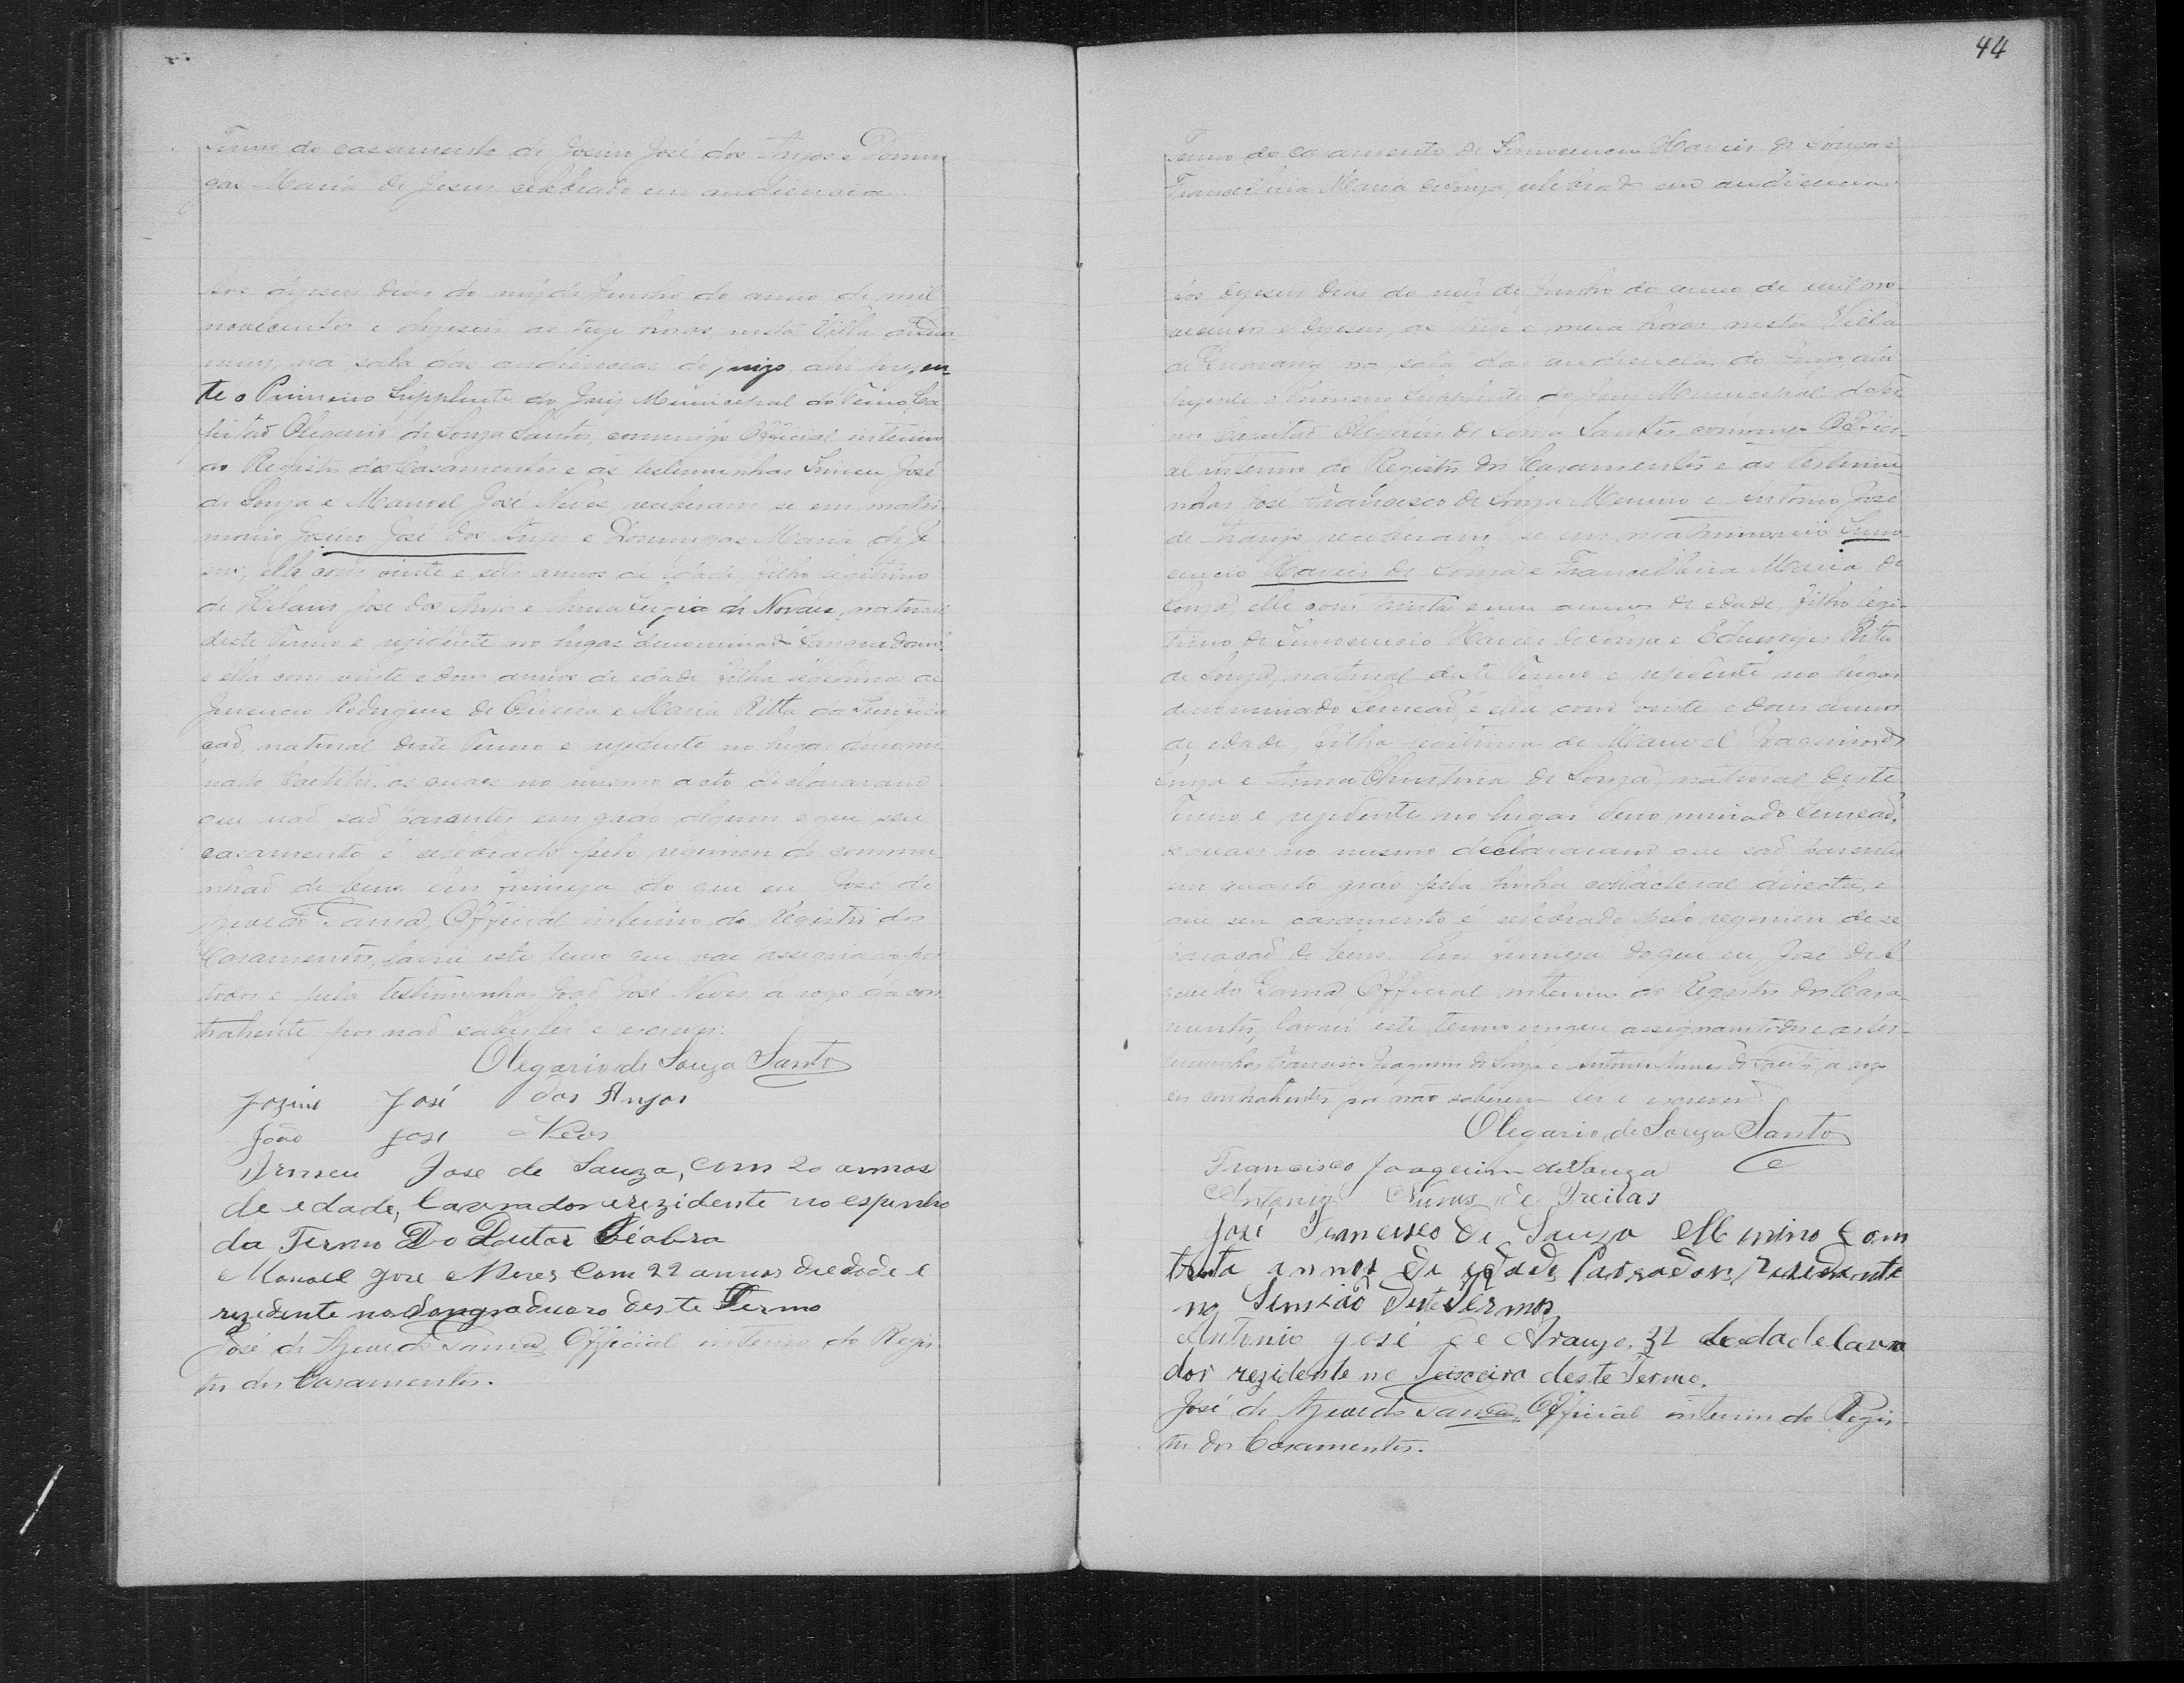 Termo do casamento de Josino José dos Anjos e Domin
gas Maria de Jesus celebrado em audiencia
Aos dezeseis dias do mez de Junho do anno de mil
novecentos e dezeseis as treze horas nesta Villa de Gua
rany, na sala das audiencias do juizo, ahi presen-
te o Primeiro Supplente do Juiz Municipal do Termo, Ca
pitão Olegario de Souza Santos, commigo Official interino
do Registro dos Casamentos e as testemunhas Irineu José
de Souza e Manoel José Neves, receberam se em matri-
monio Josino José dos Anjos e Domingas Maria de Je
sus, elle com vinte e seis annos de edade, filho legitimo
de José dos Anjos e Anna de Novaes, natural
deste Termo e rezidente no lugar denominado
e ella com vinte e dous annos de edade filha legitima de
Rodrigues de Oliveira e Maria Ritta da
cão, natural deste Termo e rezidente no lugar denomi
nado os quaes no mesmo acto declararam
que não são parentes em gráo algum e que seu
casamento é celebrado pelo regimen de commu
nhão de bens. Em firmeza do que eu José de
Azevedo Official interino do Registro dos
Casamentos, lavrei este termo que vae assignado por
todos e pela testemunha João José Neves a rogo da con
trahente por não saber ler e escrever.
Olegario de Souza Santos
Jozino José dos Anjos
João José Neves
Irineu José de Souza, com 20 annos
de edade, lavrador e rezidente no espinho
da Termo Do Doutor Séabra
Manoel José Neves Com 22 annos de edade e
rezidente no Sangraduoro deste Termo
José de Azevedo Official interino do Regis-
tro dos Casamentos.
44
Termo do casamento de Innocencio Xavier de Souza e
Francellina Maria de Souza, celebrado em audiencia
Aos dezeseis dias do mez de Junho do anno de mil no
vecentos e dezeseis, as treze e meia horas nesta Villa
de Guarany na sala das audiencias do Juizo, ahi
presente o Primeiro Supplente do Juiz Municipal do Ter
mo Capitão Olegario de Souza Santos, commigo Offici-
al interino do Registro dos Casamentos e as testemu
nhas José Francisco de Souza Menino e Antonio José
de Araujo, receberam se em matrimonio Inno
cencio Xavier de Souza e Francellina Maria de
Souza, elle com trinta e um annos de edade, filho legi-
timo de Innocencio Xavier de Souza e Eduwiges Rita
de Souza, natural deste Termo e rezidente no lugar
denominado Simeão, e ella com vinte e dous annos
de edade, filha legitima de Manoel Joaquim de
Souza e Anna Christina de Souza, natural deste
Termo e rezidente no lugar denominado Simeão,
os quaes no mesmo declararam que são parentes
em quarto gráo pela linha collacteral directa, e
que seu casamento é celebrado pelo regimen de se
paração de bens. Em firmeza do que eu José de A
zevedo Official interino do Registro dos Casa-
mentos, lavrei este termo em que assignam todos e as tes-
temunhas Francisco Joaquim de Souza e Antonio Nunes de Freitas, a rogo
dos contrahentes por não saberem ler e escrever.
Olegario de Souza Santos
Francisco Joaquim de Souza
Antonio Nunes de Freitas
José Francisco de Souza Menino Com
trinta annos de edade Lavrador, rezidente
no Simeão deste Termo
Antonio José de Araujo, 32 de edade lavra
dor rezidente no Teixeira deste Termo.
José de Azevedo Official interino do Regis-
tro dos Casamentos.